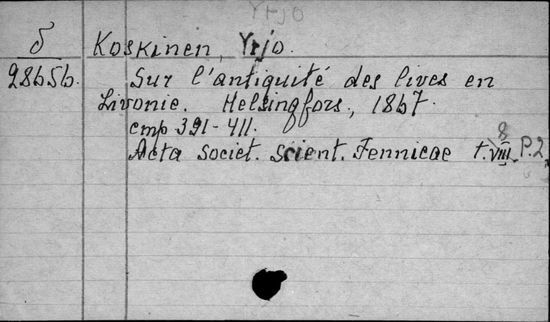 Yrjo
δ Koskinen, Yrjo.
28656. Sur l'antiquité des lives en
Livonie. Helsingfors, 1867.
cmp 391-411.
Acta Societ. scient. Fennicae t. VIII. P.2
8